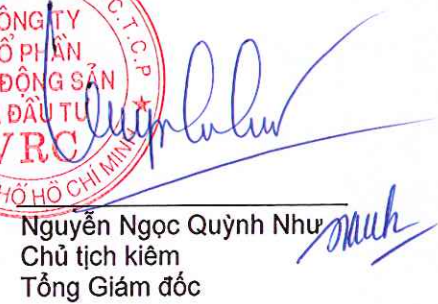 C.T.C.P
CÔNG TY
CỔ PHẦN
ĐỘNG SẢN
ĐẦU TƯ
VRC
PHỐ HỒ CHÍ MINH
Nguyễn Ngọc Quỳnh Như
Chủ tịch kiêm
Tổng Giám đốc